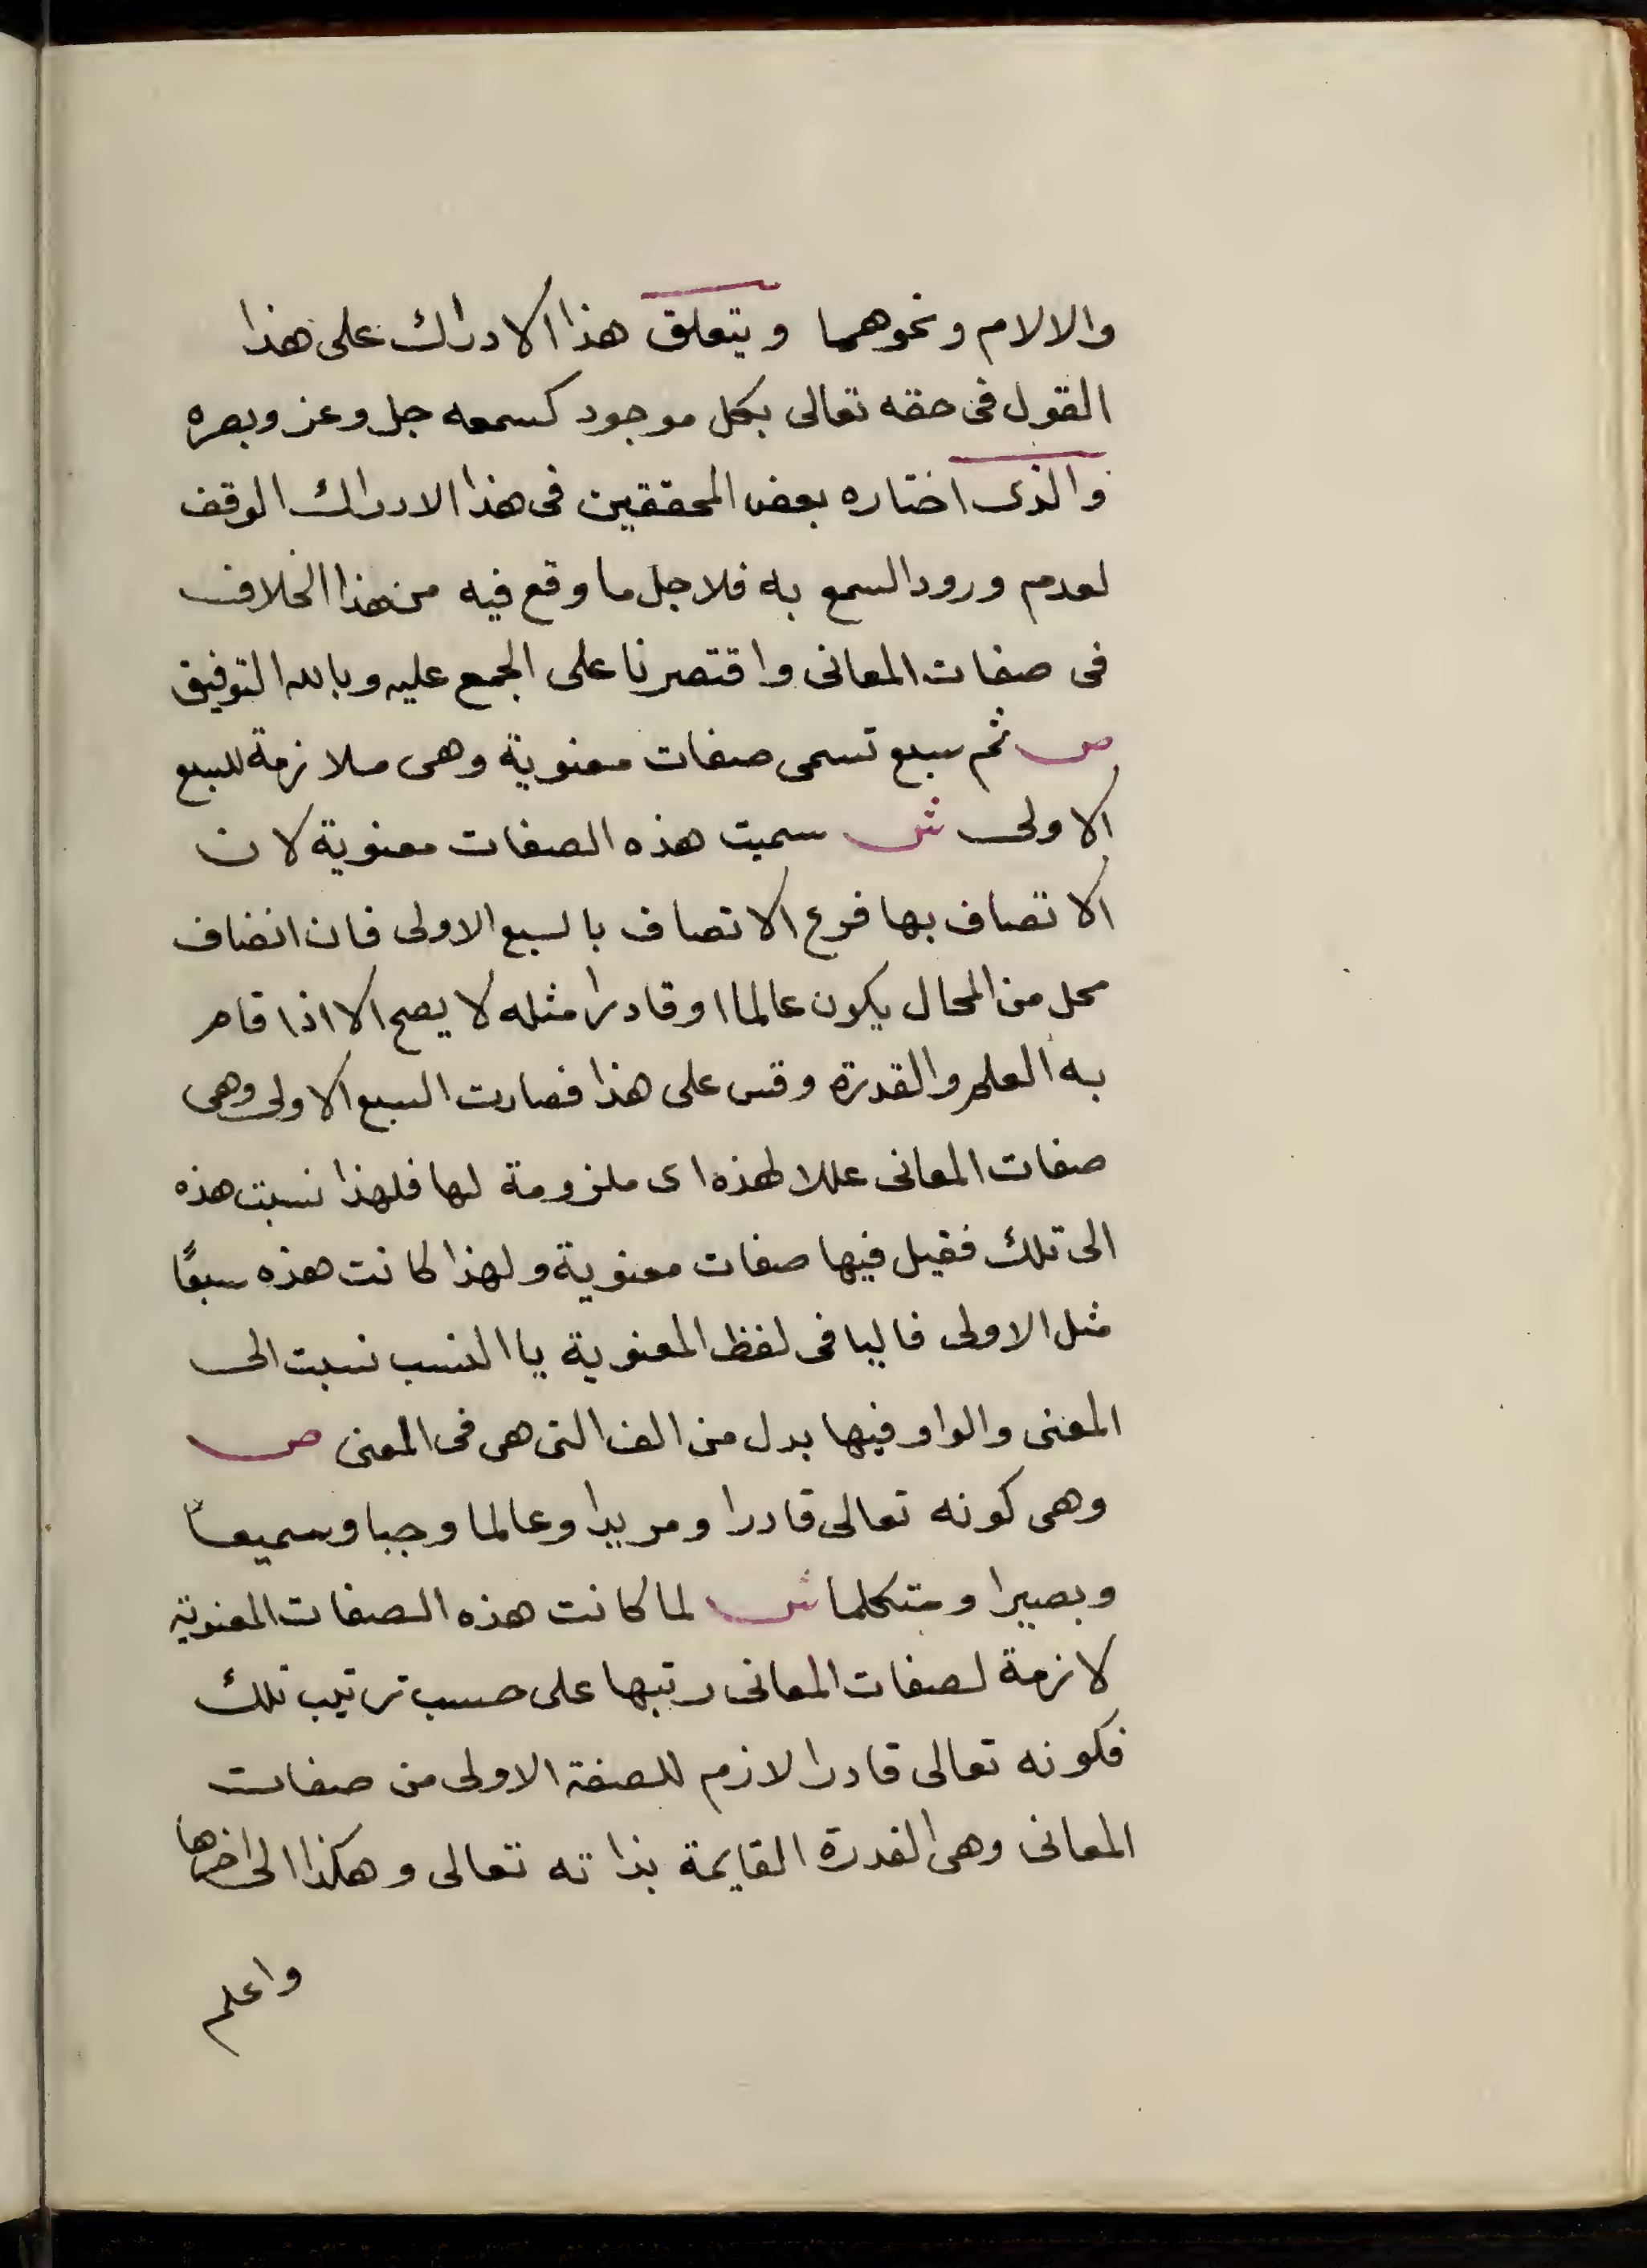 والالام ونحوهما ويتعلق هذا الادراك على هذا
القول فى حقه تعالى بكل موجود كسمعه جل وعز وبصره
والذى اختاره بعض المحققين فى هذا الادراك الوقف
لعدم ورود السمع به فلاجل ما وقع فيه من هذا الخلاف
فى صفات المعانى واقتصرنا على الجمع عليه وبالله التوفيق
ص ثم سبع تسمى صفات معنوية وهى ملازمة للسبع
الاولى ش سميت هذه الصفات معنوية لان
الاتصاف بها فرع الاتصاف بالسبع الاولى فان اتضاف
محل من المحال يكون عالما اوقادرا مثله لا يصح الا اذا قام
به العلم والقدرة وقس على هذا فصارت السبع الاولى وهى
صفات المعانى عللا لهذه اى ملزومة لها فلهذا نسبت هذه
الى تلك فقيل فيها صفات معنوية ولهذا كانت هذه سبعًا
مثل الاولى فاليا فى لفظ المعنوية يا النسب نسبت الى
المعنى والواو فيها بدل من الف التى هى فى المعنى ص
وهى كونه تعالى قادرا ومريدا وعالما وحيا وسميعا
وبصيرا ومتكلما ش لما كانت هذه الصفات المعنوية
لازمة لصفات المعانى رتبها على حسب ترتيب تلك
فكونه تعالى قادرا لازم للصفة الاولى من صفات
المعانى وهى القدرة القايمة بذاته تعالى وهكذا الى اخرها
واعلم